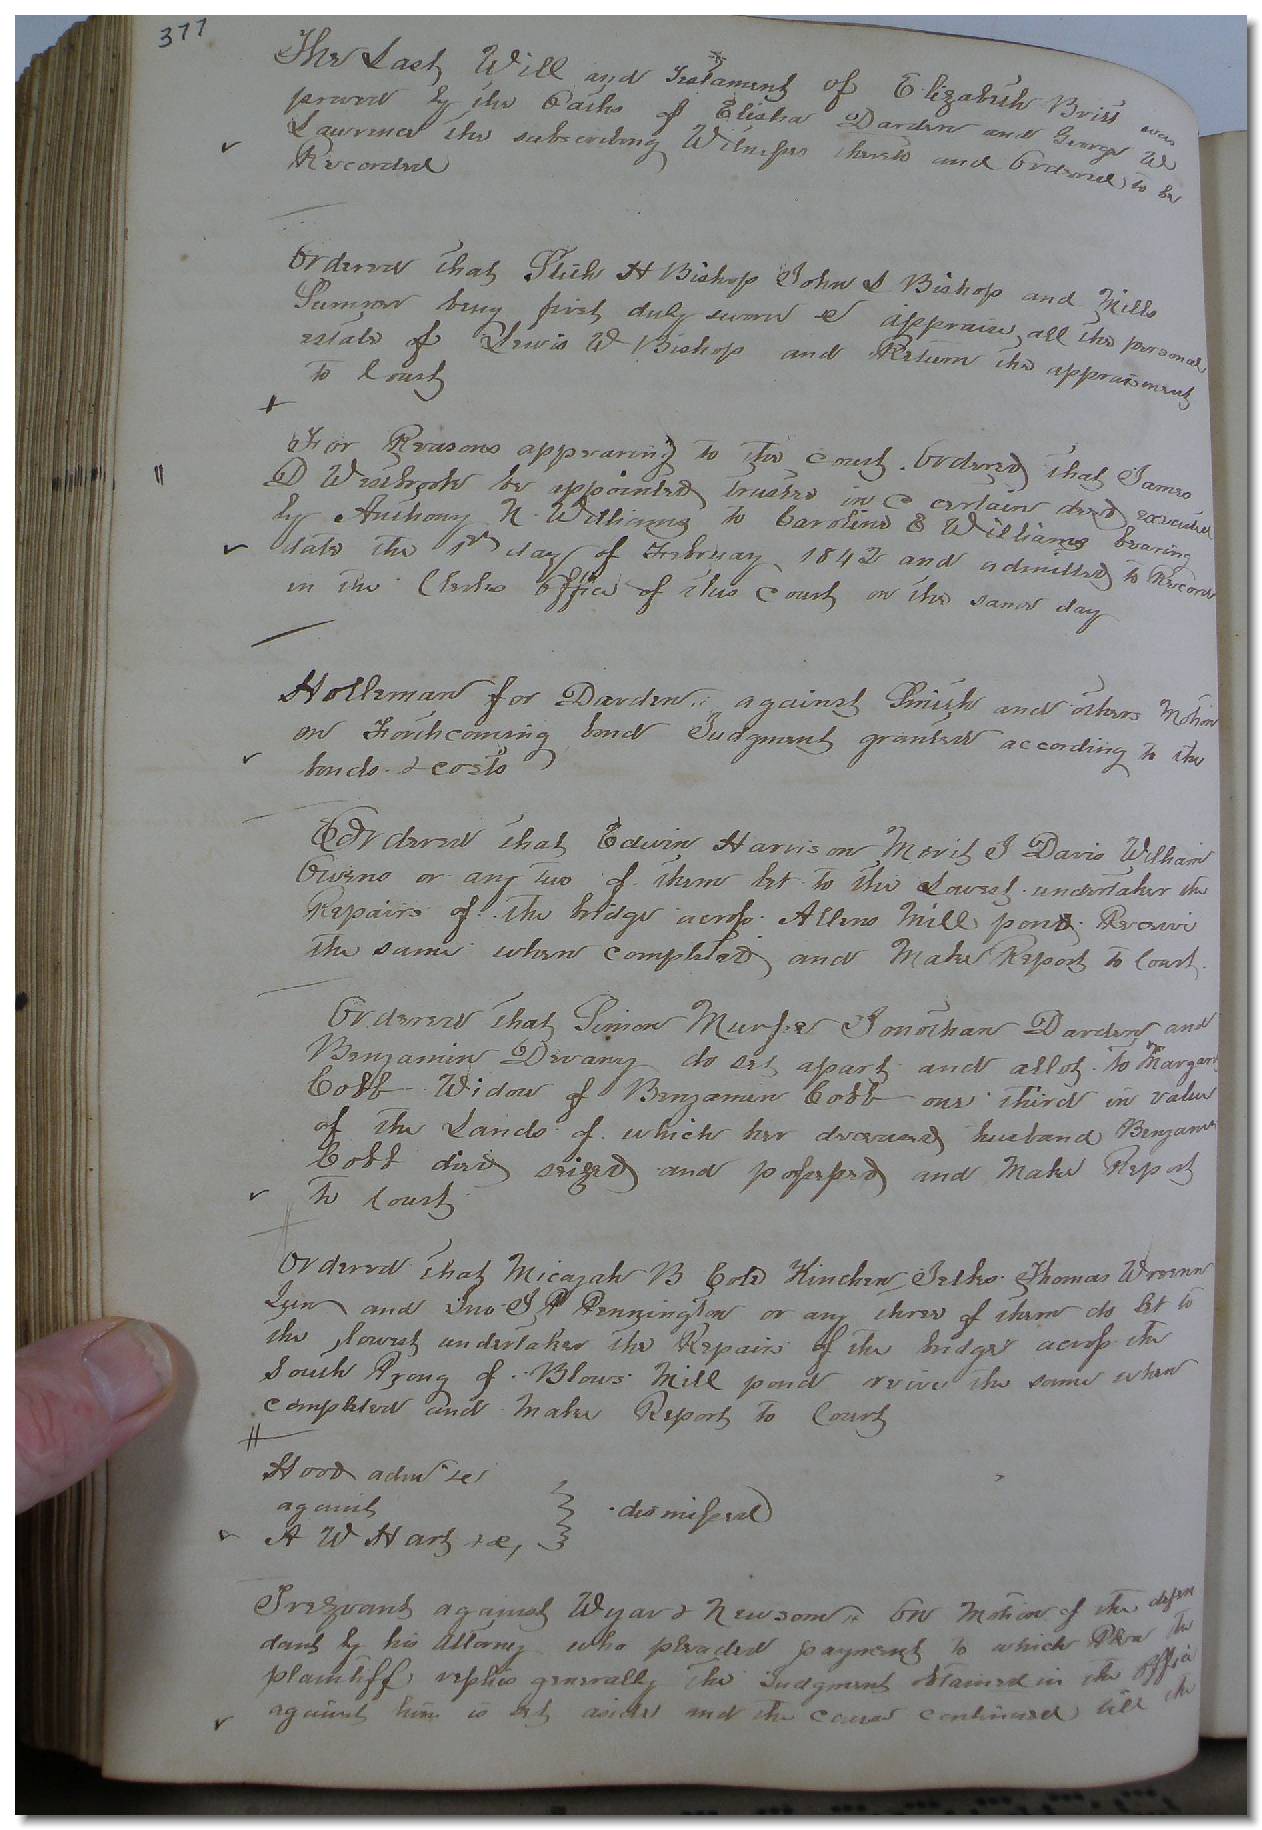 377
The Last Will and Testament of Elizabeth Britt was
proved by the Oaths of Elisha Darden and George W
Lawrence the subscribing Witnesses thereto and Ordered to be
Recorded
Ordered that H Bishop John S Bishop and Mills
being first duly sworn do appraise all the personal
estate of Lewis W Bishop and Return the appraisment
to Court
For Reasons appearing to the Court Ordered that James
D Westbrook be appointed trustee in a certain deed executed
by Anthony N Williams to Caroline E Williams bearing
date the 1st day of February 1842 and admitted to Record
in the Clerks Office of this Court on the same day
Holleman for Darden against Smith and others Motion
on Forthcoming bond Judgment granted according to the
bonds & costs
Ordered that Edwin Harrison Merit J Davis William
Owens or any two of them let to the Lowest undertaker the
Repairs of the bridge across Allens Mill pond Receive
the same when completed and Make Report to Court.
Ordered that Simon Murfee Jonothan Darden and
Benjamin Devany do set apart and allot to Margaret
Cobb Widow of Benjamin Cobb one third in value
of the Lands of which her deceased husband Benjamin
Cobb died seized and possessed and Make Report
to Court
Ordered that Micajah B Cole Kinchen Thomas Wrenn
and Jno J P Pennington or any three of them do let to
the lowest undertaker the Repairs of the bridge across the
South Prong of Blows Mill pond the same when
completed and Make Report to Court
Hood admr &c
against
A W Hart &c, } dismissed
Trezvant against Wyar & Newsom On Motion of the defen
dant by his Attorney who pleaded payment to which Plea the
plaintiff replies generally the Judgment obtained in the office
against him is set aside and the cause continued till the